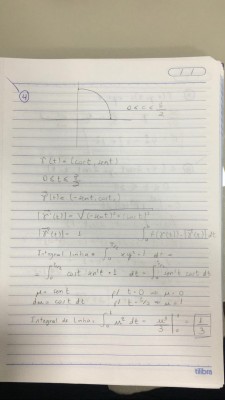 4
0 ≤ t ≤ π/2
r⃗(t) = (cost, sent)
0 ≤ t ≤ π/2
r⃗'(t) = (-sent, cost)
|r⃗'(t)| = √(-sent)² + (cost)²
|r⃗'(t)| = 1 ∫ f(r⃗(t))·|r⃗'(t)| dt
Integral linha = ∫₀^π/2 xy² · 1 dt =
= ∫₀^π/2 cost sen²t · 1 dt = ∫₀^π/2 sen²t cost dt
u = sent // t=0 ⇒ u=0
du = cost dt // t=π/2 ⇒ u=1
Integral de linha = ∫₀¹ u² du = u³/3 |₀¹ = 1/3
tilibra